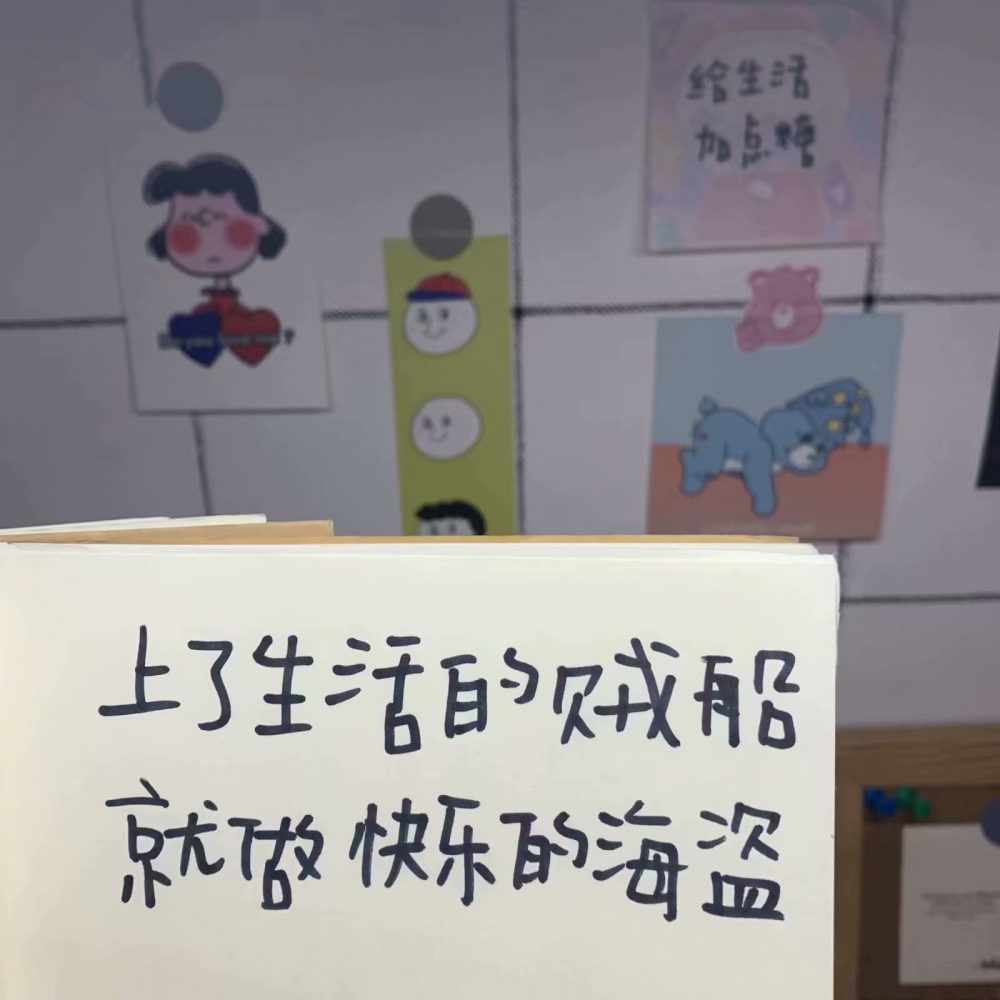 给生活
加点糖
Do you love me?
上了生活的贼船
就做快乐的海盗